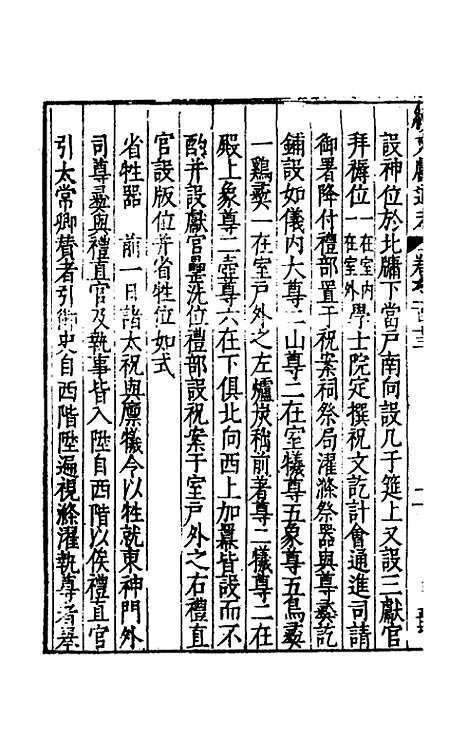 續文獻通考 卷之一百三
設神位於北牖下當戸南向設几于筵上又設三獻官
拜褥位一在室内一在室外學士院定撰祝文訖計會通進司請
御署降付禮部置于祝案祠祭局濯滌祭器與尊彝訖
鋪設如儀内大尊二山尊二在室犧尊五象尊五鳥彝
一鷄彝一在室戸外之左爐炭稍前著尊二犧尊二在
殿上象尊二壺尊六在下俱北向西上加羃皆設而不
酌并設獻官罍洗位禮部設祝案于室戸外之右禮直
官設版位并省牲位如式
省牲器 前一日諸太祝與廪犧令以牲就東神門外
司尊彝與禮直官及執事皆入陞自西階以俟禮直官
引太常卿賛者引御史自西階陞遍視滌濯執尊者舉